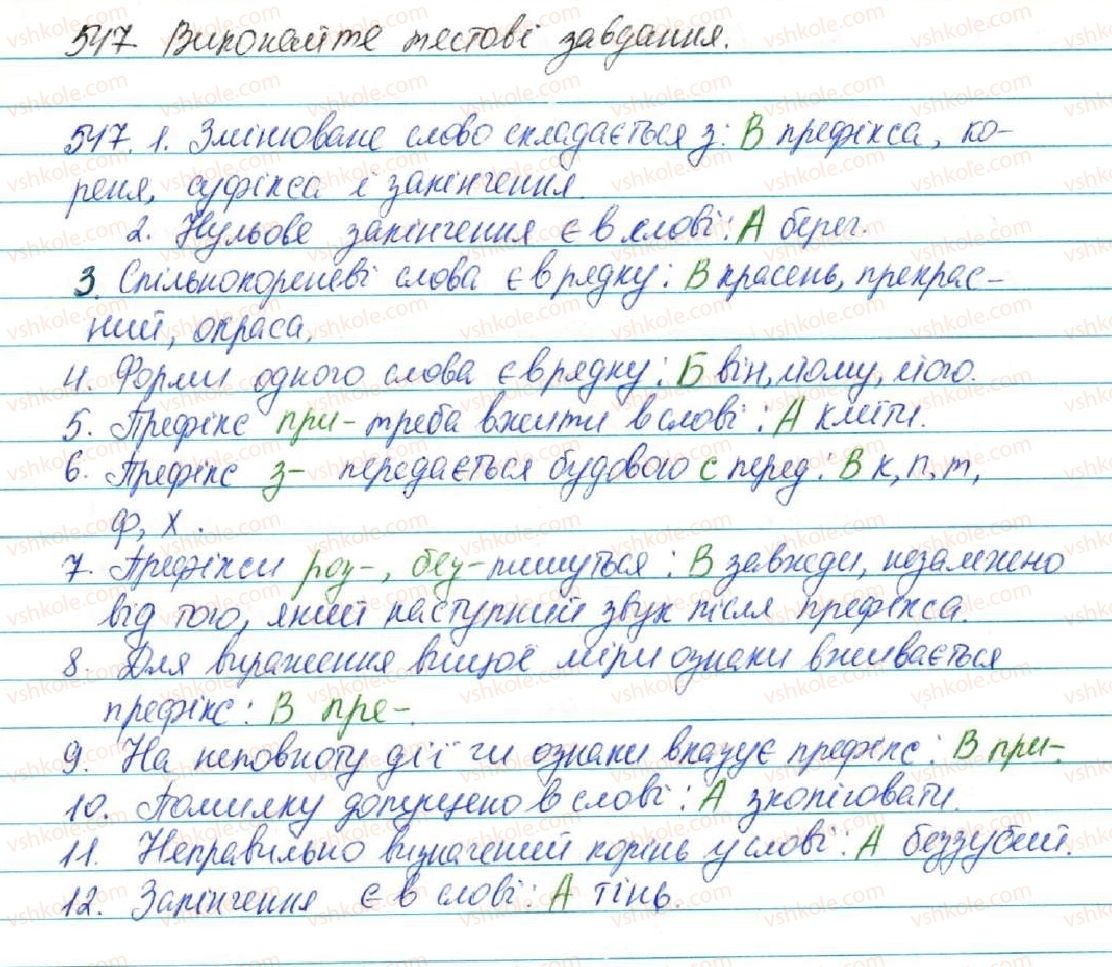 547. Виконайте тестові завдання.
547. 1. Змінюване слово складається з: В префікса, ко-
реня, суфікса і закінчення.
2. Нульове закінчення є в слові: А берег.
3. Спільнокореневі слова є в рядку: В красень, прекрас-
ний, окраса.
4. Форми одного слова є в рядку: Б він, йому, його.
5. Префікс при- треба вжити в слові: А клеїти.
6. Префікс з- передається буквою с перед: В к, п, т,
ф, х.
7. Префікси роз-, без- пишуться: В завжди, незалежно
від того, який наступний звук після префікса.
8. Для вираження вищої міри ознаки вживається
префікс: В пре-.
9. На неповноту дії чи ознаки вказує префікс: В при-.
10. Помилку допущено в слові: А зкопіювати.
11. Неправильно визначений корінь у слові: А беззубий.
12. Закінчення є в слові: А тінь.